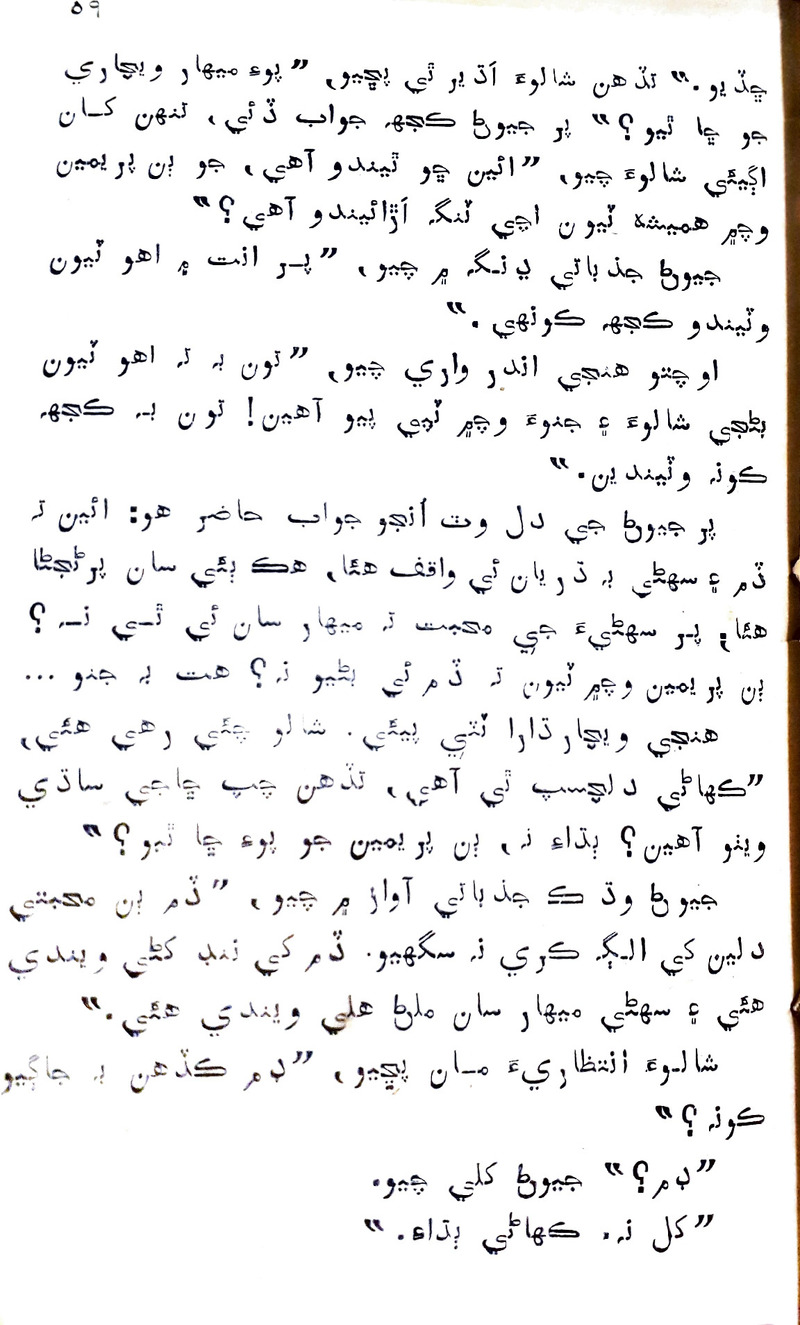 ٥٩
ڇڏيو.“ تڏهن شالوءَ اَڌير ٿي پڇيو، ”پوءِ ميهار ويچاري
جو ڇا ٿيو؟“ پر جيوڻ ڪجهہ جواب ڏئي، تنهن کان
اڳيئي شالوءَ چيو، ”ائين ڇو ٿيندو آهي، جو ٻن پريمين
وچ۾ هميشہ ٽيون اچي ٽنگہ اَڙائيندو آهي؟“
جيوڻ جذباتي ڍنگہ ۾ چيو، ”پر انت ۾ اهو ٽيون
وٺيندو ڪجهہ ڪونهي.“
اوچتو هنجي اندر واري چيو، ”تون بہ تہ اهو ٽيون
بڻجي شالوءَ ۽ جنوءَ وچ۾ ٽپي پيو آهين! تون بہ ڪجهہ
ڪونہ وٺيندين.“
پر جيوڻ جي دل وٽ اُنجو جواب حاضر هو: ائين تہ
ڏم ۽ سهڻي بہ ڌريان ئي واقف هئا، هڪ ٻئي سان پرڻجڻا
هئا؛ پر سهڻيءَ جي محبت تہ ميهار سان ئي ٿي نہ؟
ٻن پريمين وچ۾ ٽيون تہ ڏم ئي بڻيو نہ؟ هت بہ جنو ...
هنجي ويچارڌارا ٽٽي پيئي. شالو چئي رهي هئي،
”ڪهاڻي دلچسپ ٿي آهي، تڏهن چپ ڇاجي ساڌي
ويٺو آهين؟ ٻڌاءِ نہ، ٻن پريمين جو پوءِ ڇا ٿيو؟“
جيوڻ وڌ ڪ جذباتي آواز ۾ چيو، ”ڏم ٻن محبتي
دلين کي الڳہ ڪري نہ سگهيو. ڏم کي ننڊ کڻي ويندي
هئي ۽ سهڻي ميهار سان ملڻ هلي ويندي هئي.“
شالوءَ انتظاريءَ مان پڇيو، ”ڊم ڪڏهن بہ جاڳيو
ڪونہ؟“
”ڊم؟“ جيوڻ کلي چيو.
”کل نہ. ڪهاڻي ٻڌاءِ.“